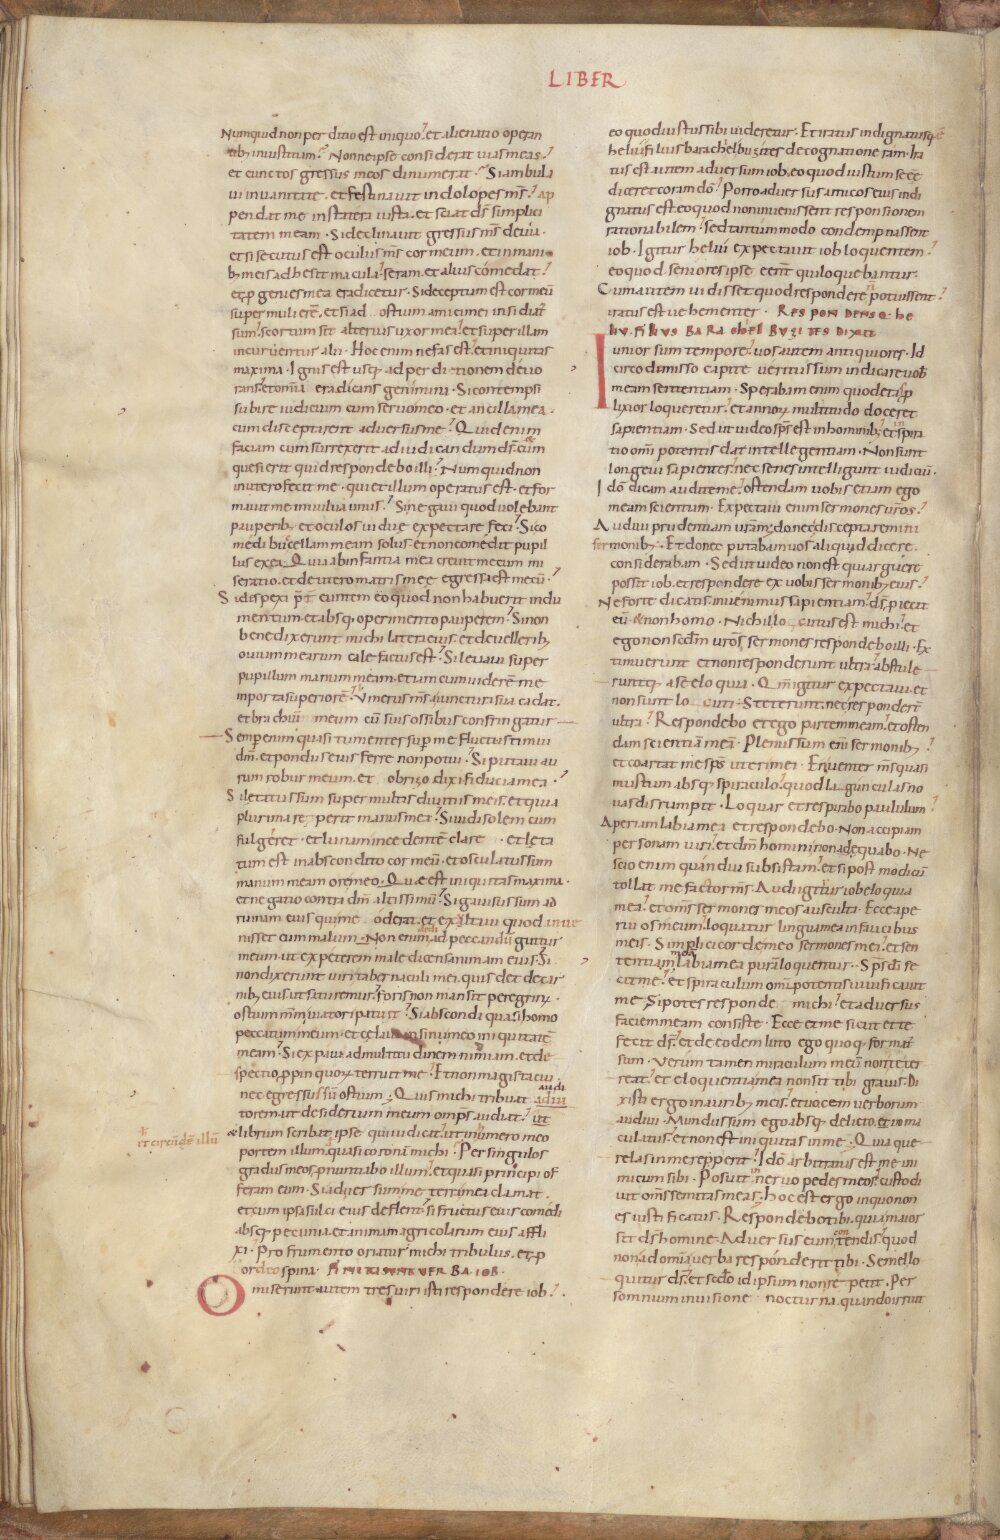 LIBER
Numquid non perditio est iniquo? et alienatio operan
tib; iniustitiam? Nonne ipse considerat uias meas?
et cunctos gressus meos dinumerat? Si ambula
ui in uanitate. et festinauit in dolo pes m̅s? ap
pendat me in statera iusta. et sciat d̅s simplici
tatem meam. Si declinauit gressus m̅s de uia.
et si secutus est oculus m̅s cor meum. et in mani
b; meis adhesit macula? seram. et alius comedat?
et p̲genies mea eradicetur. Si deceptum est cor meū
super muliere̅. et si ad ostium amici mei insidiat'
sum? scortum sit alterius uxor mea? et super illam
incuruentur alii. Hoc enim nefas est. et iniquitas
maxima. Ignis est usq; ad perditionem deuo
rans? et om̅ia eradicans genimina. Si contempsi
subire iudicium cum seruo meo. et ancilla mea.
cum disceptarent aduersus me? Quid enim
faciam cum surrexerit ad iudicandum d̅s? et cum
quesierit quid respondebo illi? Numquid non
in utero fecit me. qui et illum operatus est. et for
mauit me in uulua unus? Si negaui quod uolebant
pauperib; et oculos uidue expectare feci? Si co
medi bucellam meam solus. et non comedit pupil
lus ex ea? Quia ab infantia mea creuit mecum mi
seratio. et de utero matris mee egressa est mecū?
Si despexi p̲ter euntem eo quod non habuerit indu
mentum. et absq; operimento pauperem? Si non
benedixerunt michi latera eius. et de uellerib;
ouium mearum calefactus est? Si leuaui super
pupillum manum meam. et cum uiderem me
in porta superiore̅? Umerus m̅s a iunctura sua cadat.
et brachiū meum cū suis ossibus confringatur
Semper enim quasi tumentes sup̲ me fluctus timui
dm̅. et pondus eius ferre non potui. Si putaui au
rum robur meum. et obrizo dixi fiducia mea?
Si letatus sum super multis diuitiis meis. et quia
plurima repperit manus mea? Si uidi solem cum
fulgeret. et lunam incedente̅ clare et leta
tum est in abscondito cor meū. et osculatus sum
manum meam ore meo. Quae est iniquitas maxima.
et negatio contra dm̅ altissimū? Si gauisus sum ad
ruinam eius qui me oderat. et exaltaui quod inue
nisset eum malum. Non enim dedi ad peccandū guttur
meum. ut expeterem maledicens animam eius? Si
non dixerunt uiri tabernaculi mei. quis det de car
nib; eius ut saturemur? foris non mansit peregrin';
ostium m̅m uiatori patuit? Si abscondi quasi homo
peccatum meum. et celaui in sinu meo iniquitate̅
meam? Si expaui ad multitudinem nimiam. et de
spectio p̲pinquorum terruit me? Et non magis tacui.
nec egressus sum ostium; Quis michi tribuat audi
torem ut desiderium meum omp̅s audiat? ut
& librum scribat ipse qui iudicat? ut in umero meo
& circu̅de̅ illū
portem illum. quasi corona̅ michi. Per singulos
gradus meos p̲nuntiabo illum? et quasi principi of
feram eum. Si aduersum me terra mea clamat.
et cum ipsa sulci eius deflent? si fructus eius comedi
absq; pecunia. et animam agricolarum eius affli
xi. Pro frumento oriatur michi tribulus. et p̲
ordeo spina. FINITA SUNT UERBA IOB.
Omiserunt autem tres uiri isti respondere iob?.
eo quod iustus sibi uideretur. Et iratus indignatusq; e̅
heliu filius barachel buzites de cognatione ram. Ira
tus est autem aduersum iob. eo quod iustum se ee̅
diceret coram do̅? Porro aduersus amicos eius indi
gnatus est. eo quod non inuenissent responsionem
rationabilem? sed tantummodo condempnassent
iob. Igitur heliu expectauit iob loquentem?
eo quod seniores ipse eent̅ qui loquebantur.
Cum autem uidisset quod respondere n̅ potuissent?
iratus est uehementer. RESPONDENSQ; HE
LIU FILIUS BARACHEL BUZITES DIXIT
Iunior sum tempore? uos autem antiquiores. Id
circo dimisso capite ueritus sum indicare uob̅
meam sententiam. Sperabam enim quod etas p̲
lixior loqueretur? et annorum multitudo doceret
sapientiam. Sed ut uideo sp̅s est in hominib; et inspira
tio om̅ipotentis dat intellegentiam. Non sunt
longeui sapientes? nec senes intelligunt iudiciū.
Ido̅ dicam audite me? ostendam uobis etiam ego
meam scientiam. Expectaui enim sermones ur̅os?
Audiui prudentiam ur̅am? donec disceptaremini
sermonib;. Et donec putabam uos aliquid dicere.
considerabam. Sed ut uideo non est qui arguere
possit iob. et respondere ex uobis sermonib; eius?
Ne forte dicatis. inuenimus sapientiam? d̅s p̲iecit
eū & non homo. Nichil locutus est michi? et
ego non sedm̅ ur̅os sermones respondebo illi. Ex
timuerunt et non responderunt ultra? abstule
runtq; a se eloquia. Qm̅ igitur expectaui. et
non sunt locuti. Steterunt. nec responder̅
ultra? Respondebo et ego partem meam? et osten
dam scientia̅ mea̅. Plenus sum eni̅ sermonib;?
et coartat me sp̅s uteri mei. En uenter m̅s quasi
mustum absq; spiraculo? quod lagunculas no
uas disrumpit. Loquar et respirabo paululum?
Aperiam labia mea et respondebo. Non accipiam
personam uiri? et dm̅ homini non adequabo. Ne
scio enim quandiu subsistam? et si post modicū
tollat me factor m̅s. Audi igitur iob eloquia
mea? et om̅s sermones meos ausculta. Ecce ape
rui os meum? loquatur lingua mea in faucibus
meis. Simplici corde meo sermones mei? et sen
tentiam labia mea pura̅ loquentur. Sp̅s di̅ fe
cit me? et spiraculum om̅ipotentis uiuificauit
me. Si potes responde michi? et aduersus
faciem meam consiste. Ecce et me sicut et te
fecit d̅s? et de eodem luto ego quoq; format'
sum. Verum tamen miraculum meū non te ter
reat? et eloquentia mea non sit tibi grauis. Di
xisti ergo in aurib; meis? et uocem uerborum
audiui. Mundus sum ego absq; delicto. et inma
culatus? et non est iniquitas in me. Quia que
relas in me repperit? Ido̅ arbitratus est me ini
micum sibi. Posuit in neruo pedes meos? custodi
uit om̅s semitas meas? hoc est ergo in quo non
es iustificatus. Respondebo tibi. quia maior
sit d̅s homine. Aduersus eum contendis? quod
non ad om̅ia uerba responderit tibi. Semel lo
quitur d̅s? et sedo̅ id ipsum non repetit. Per
somnium in uisione nocturna. quando irruit